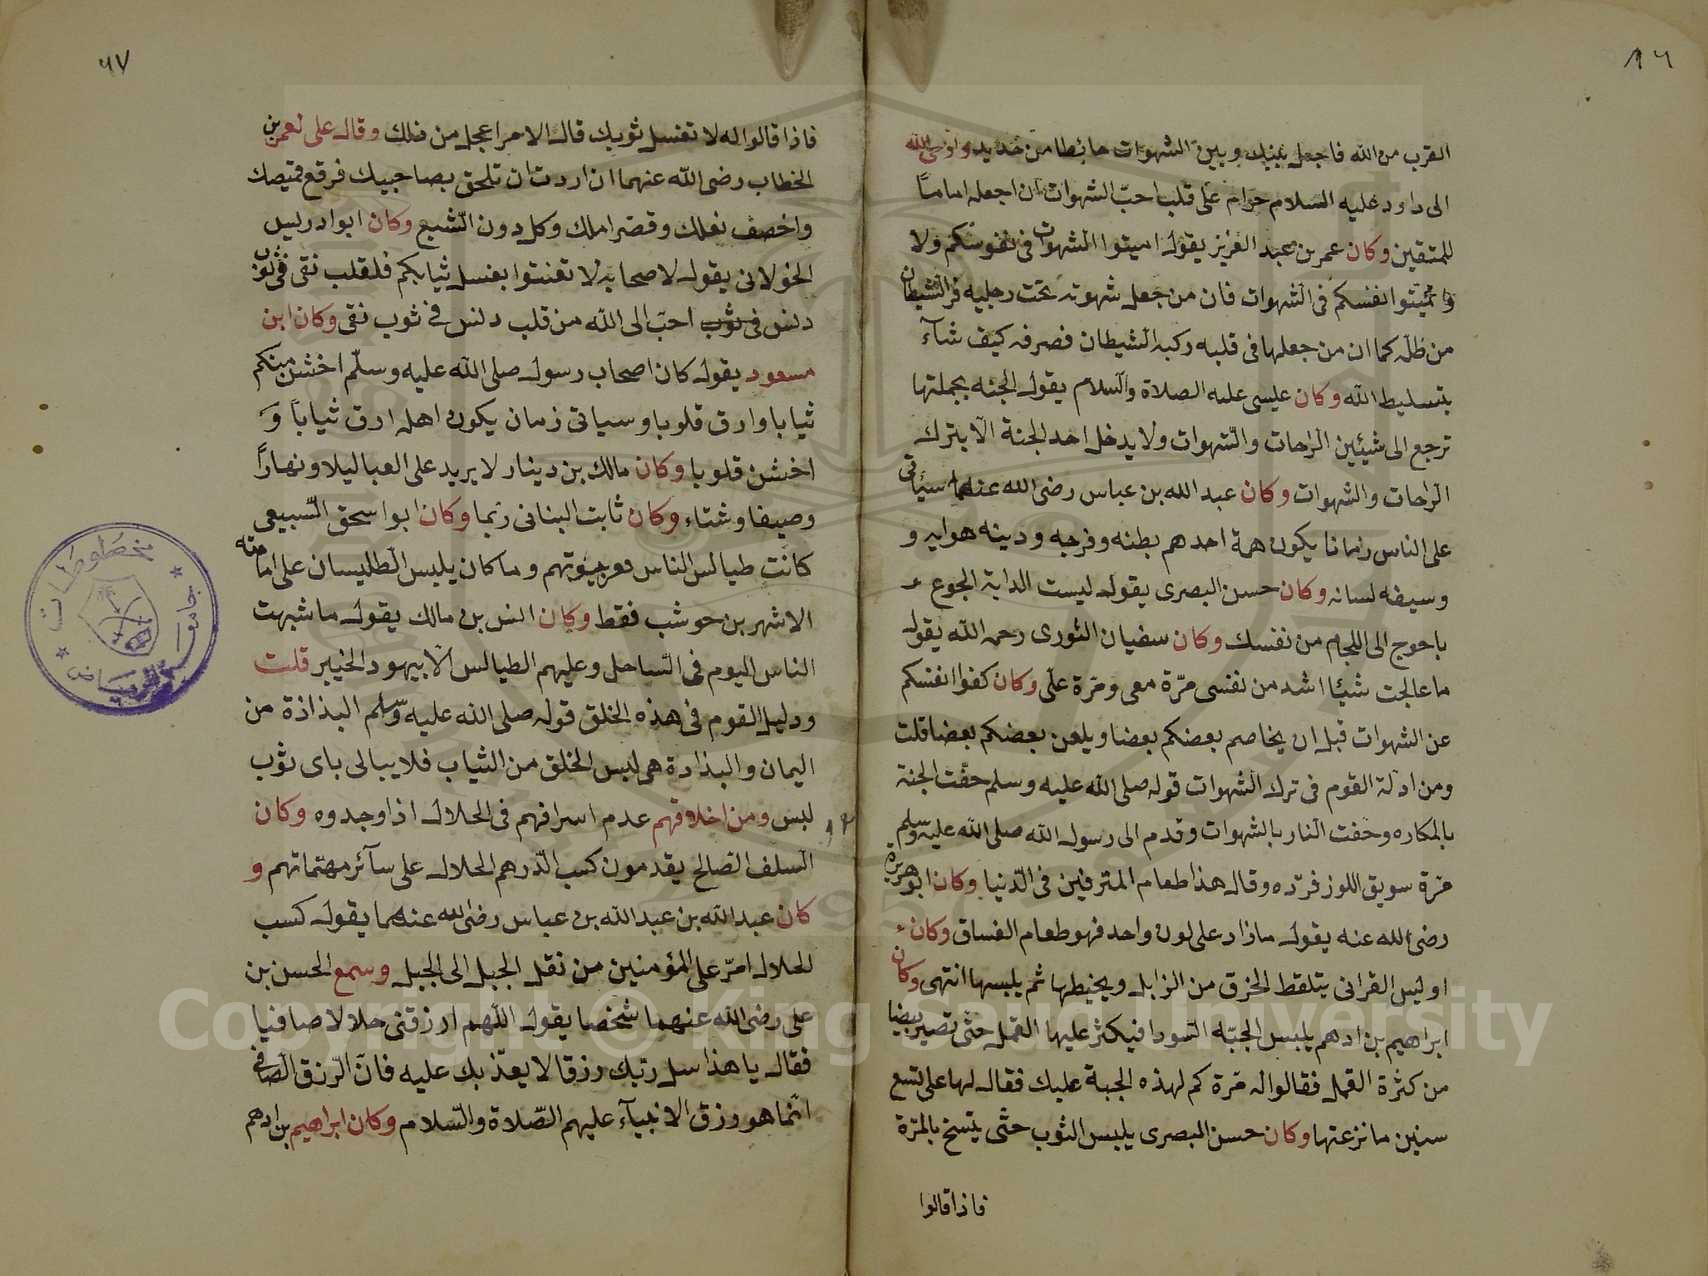 ٨٦
القرب من الله فاجعل بينك وبين الشهوات حائطا من حديد واوحى الله
الى داود عليه السلام حرام على قلب احبّ الشهوات ان اجعله اماما
للمتقين وكان عمر بن عبد العزيز يقول اميتوا الشهوات فى نفوسكم ولا
تميتوا انفسكم فى الشهوات فان من جعل شهوته تحت رجليه فرّ الشيطان
من ظلّه كما ان من جعلها فى قلبه ركبه الشيطان فصرفه كيف شآء
بتسليط الله وكان عيسى عليه الصلاة والسلام يقول الجنه بجملتها
ترجع الى شيئين الراحات والشهوات ولا يدخل احد الجنة الا بترك
الراحات والشهوات وكان عبد الله بن عباس رضى الله عنهما سيأتى
على الناس زمانا يكون همة احدهم بطنه وفرجه ودينه هوايه و
وسيفه لسانه وكان حسن البصرى يقول ليست الدابة الجوع
باحوج الى اللجام من نفسك وكان سفيان الثورى رحمه الله يقول
ما عالجت شيئا اشد من نفسى مرّة معى ومرّة علىّ وكان كفوا انفسكم
عن الشهوات قبل ان يخاصم بعضكم بعضا ويلعن بعضكم بعضا قلت
ومن ادلة القوم فى ترك الشهوات قوله صلى الله عليه وسلم حفت الجنة
بالمكاره وحفت النار بالشهوات وقدم الى رسول الله صلى الله عليه وسلم
مرة سويق اللوز فردّه وقال هذا طعام المترفين فى الدّنيا وكان ابو هريرة
رضى الله عنه يقول مازاد على لون واحد فهو طعام الفساق وكان
اوليس القرانى يتلقط الخرق من الزابل ويخيطها ثم يلبسها انتهى وكان
ابراهيم بن ادهم يلبس الجبّه السودا فيكثر عليها القمل حتى تصير بيضا
من كثرة القمل فقالوا له مرّة كم لهذه الجبة عليك فقال لها على تسع
سنين ما نزعتها وكان حسن البصرى يلبس الثوب حتّى يتسخ بالمرّة
فاذا قالوا
٨٧
فاذا قالوا له لا تغسل ثوبك قال الامر اعجل من ذلك وقال على لعمر بن
الخطاب رضى الله عنهما ان اردت ان تلحق بصاحبيك فرقع قميصك
واخصف نعلك وقصر املك وكل دون الشبع وكان ابوادريس
الخولانى يقول لاصحابه لا تعتنوا بغسل ثيابكم فلقلب نقى فى ثوب
دنس فى ثوب احبّ الى الله من قلب دنس فى ثوب نقى وكان ابن
مسعود يقول كان اصحاب رسول صلى الله عليه وسلّم اخشن منكم
ثيابا وارق قلوبا وسياتى زمان يكون اهله ارق ثياباً و
اخشن قلوبا وكان مالك بن دينار لا يريد على العبا ليلا ونهاراً
وصيفا وشتاء وكان ثابت البنانى ربما وكان ابواسحق السّبيعى
كانت طيالس الناس وما كان يلبس الطليسان على امامته
الا شهر بن حوشب فقط وكان انس بن مالك يقول ما شبهت
الناس اليوم فى السّاحل وعليهم الطيالس الا بيهود الخيبر قلت
ودليل القوم فى هذه الخلق قوله صلى الله عليه وسلم البذاذة من
اليمان والبذاذة هى لبس الخلق من الثياب فلا يبالى باى ثوب
لبس ومن اخلاقهم عدم اسرافهم فى الحلال اذا وجدوه وكان
السلف الصالح يقدمون كسب الدّرهم الحلال على سآئر مهتماتهم و
كان عبد الله بن عبد الله بن عباس رضى الله عنهما يقول كسب
الحلال امرّ على المؤمنين من نقل الجبل الى الجبل وسمع الحسن بن
على رضى الله عنهما شخصا يقول اللّهم ارزقنى حلالا صافيا
فقال يا هذا سل ربّك رزقا لا يعذّبك عليه فانّ الرّزق الصّافى
انّما هو رزق الانبيآء عليهم الصّلاة والسّلام وكان ابراهيم بن ادهم
مخطوطات
جامعة الرياض
Copyright © King Saud University